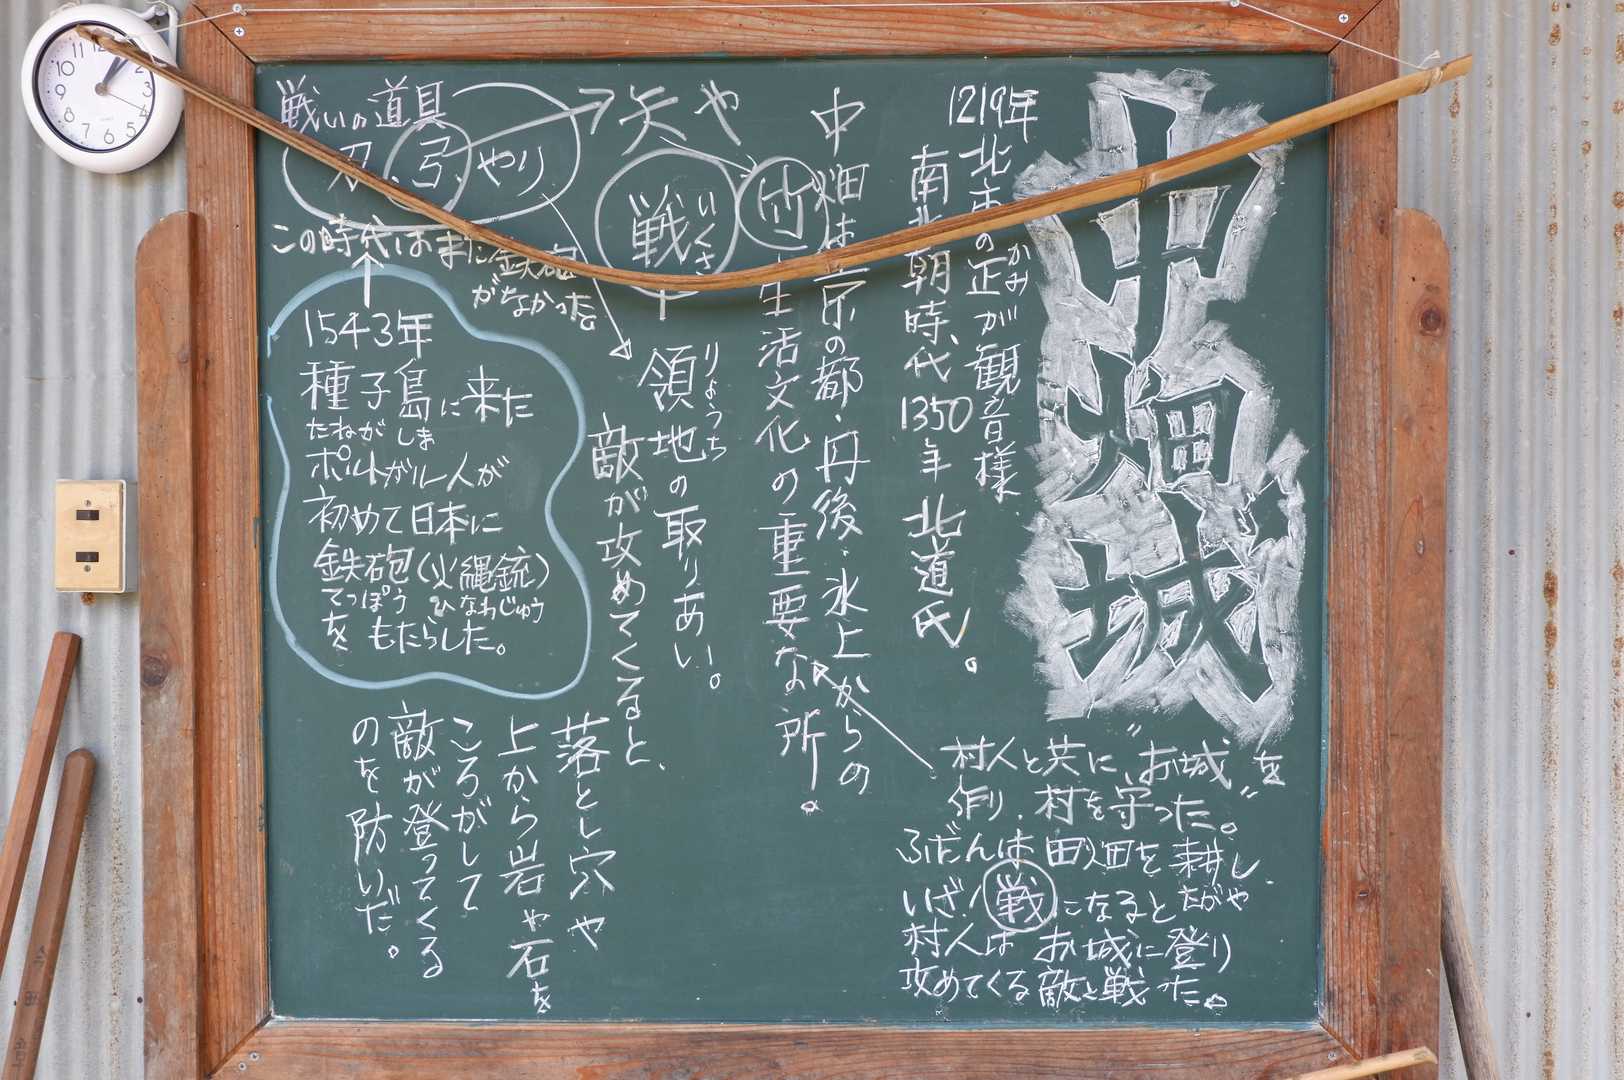 中畑城
1219年
北村の正が観音様
かみ
南北朝時代1350年北道氏。
中畑は京の都・丹後・氷上からの
竹 生活文化の重要な所。
矢や
戦いくさ
領地の取りあい。
りょうち
敵が攻めてくると、
落とし穴や
上から岩や石を
ころがして
敵が登ってくる
のを防いだ。
戦いの道具
刀、弓、やり
この時代はまだ鉄砲
がなかった。
1543年
種子島に来た
たねがしま
ポルトガル人が
初めて日本に
鉄砲(火縄銃)
てっぽう ひなわじゅう
を もたらした。
村人と共に、"お城"を
創り、村を守った。
ふだんは田畑を耕し、
たがや
いざ!戦になると
村人はお城に登り
攻めてくる敵と戦った。
11 12 2 3 5 6 7 8 9 10